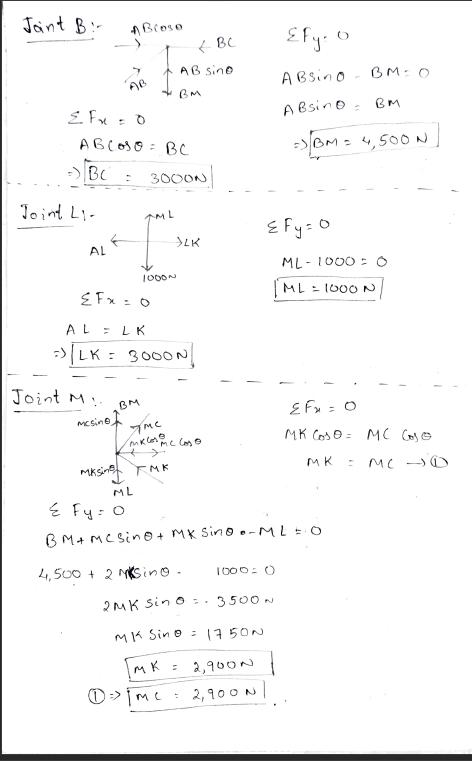 Joint B:-
ABcosθ
BC
AB
AB sinθ
BM
ΣFy = 0
ABsinθ - BM = 0
ABsinθ = BM
=> BM = 4,500 N
ΣFx = 0
ABcosθ = BC
=> BC = 3000N
Joint L:-
ML
AL
LK
1000N
ΣFy = 0
ML - 1000 = 0
ML = 1000 N
ΣFx = 0
AL = LK
=> LK = 3000N
Joint M:-
BM
MCsinθ
MC
MKCosθ
MC Cosθ
MKsinθ
MK
ML
ΣFx = 0
MK Cosθ = MC Cosθ
MK = MC → ①
Σ Fy = 0
BM + MCSinθ + MK Sinθ - ML = 0
4,500 + 2MKSinθ - 1000 = 0
2MK Sinθ = - 3500N
MK Sinθ = 1750N
MK = 2,900N
① => MC = 2,900N